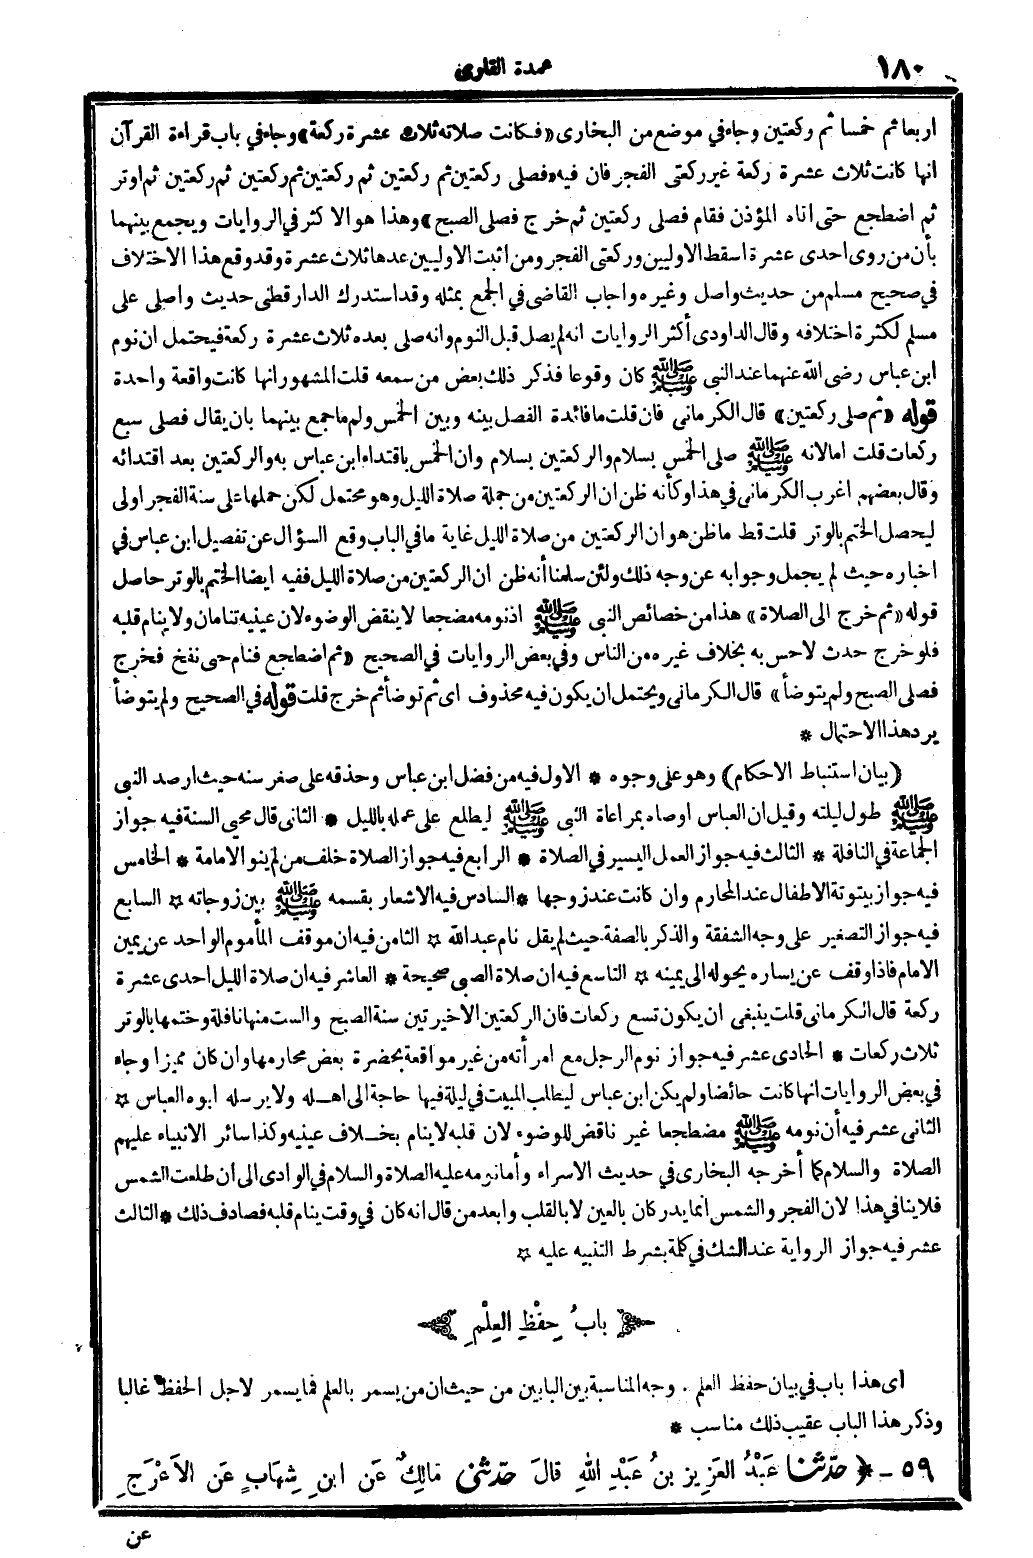 ١٨٠
عمدة القارى
اربعا ثم خمسا ثم ركعتين وجاء في موضع من البخارى «فكانت صلاته ثلاث عشرة ركعة» وجاء في باب قراءة القرآن
انها كانت ثلاث عشرة ركعة غير ركعتى الفجر فان فيه «فصلى ركعتين ثم ركعتين ثم ركعتين ثم ركعتين ثم ركعتين ثم اوتر
ثم اضطجع حتى اتاه المؤذن فقام فصلى ركعتين ثم خرج فصلى الصبح» وهذا هو الاكثر في الروايات ويجمع بينهما
بأن من روى احدى عشرة اسقط الاوليين وركعتى الفجر ومن اثبت الاوليين عدها ثلاث عشرة وقد وقع هذا الاختلاف
في صحيح مسلم من حديث واصل وغيره واجاب القاضى في الجمع بمثله وقد استدرك الدارقطنى حديث واصل على
مسلم لكثرة اختلافه وقال الداودى أكثر الروايات انه لم يصل قبل النوم وانه صلى بعده ثلاث عشرة ركعة فيحتمل ان نوم
ابن عباس رضى الله عنهما عند النبى ﷺ كان وقوعا فذكر ذلك بعض من سمعه قلت المشهور انها كانت واقعة واحدة
قوله «ثم صلى ركعتين» قال الكرمانى فان قلت ما فائدة الفصل بينه وبين الخمس ولم ما جمع بينهما بان يقال فصلى سبع
ركعات قلت اما لانه ﷺ صلى الخمس بسلام والركعتين بسلام وان الخمس باقتداء ابن عباس به والركعتين بعد اقتدائه
وقال بعضهم اغرب الكرمانى في هذا وكأنه ظن ان الركعتين من جملة صلاة الليل وهو محتمل لكن حملها على سنة الفجر اولى
ليحصل الختم بالوتر قلت قط ما ظن هو ان الركعتين من صلاة الليل غاية ما في الباب وقع السؤال عن تفصيل ابن عباس في
اخباره حيث لم يجمل وجوابه عن وجه ذلك ولئن سلمنا أنه ظن ان الركعتين من صلاة الليل ففيه ايضا الختم بالوتر حاصل
قوله «ثم خرج الى الصلاة» هذا من خصائص النبى ﷺ اذ نومه مضجعا لا ينقض الوضوء لان عينيه تنامان ولا ينام قلبه
فلو خرج حدث لاحس به بخلاف غيره من الناس وفي بعض الروايات في الصحيح «ثم اضطجع فنام حتى نفخ فخرج
فصلى الصبح ولم يتوضأ» قال الكرمانى ويحتمل ان يكون فيه محذوف اى ثم توضأ ثم خرج قلت قوله في الصحيح ولم يتوضأ
يرد هذا الاحتمال *
(بيان استنباط الاحكام) وهو على وجوه * الاول فيه من فضل ابن عباس وحذقه على صغر سنه حيث ارصد النبى
ﷺ طول ليلته وقيل ان العباس اوصاه بمراعاة النبى ﷺ ليطلع على عمله بالليل * الثانى قال محيى السنة فيه جواز
الجماعة في النافلة * الثالث فيه جواز العمل اليسير في الصلاة * الرابع فيه جواز الصلاة خلف من لم ينو الامامة * الخامس
فيه جواز بيتوتة الاطفال عند المحارم وان كانت عند زوجها * السادس فيه الاشعار بقسمه ﷺ بين زوجاته * السابع
فيه جواز التصغير على وجه الشفقة والذكر بالصفة حيث لم يقل نام عبد الله * الثامن فيه ان موقف المأموم الواحد عن يمين
الامام فاذا وقف عن يساره يحوله الى يمينه * التاسع فيه ان صلاة الصبى صحيحة * العاشر فيه ان صلاة الليل احدى عشرة
ركعة قال الكرمانى قلت ينبغى ان يكون تسع ركعات فان الركعتين الاخيرتين سنة الصبح والست منها نافلة وختمها بالوتر
ثلاث ركعات * الحادى عشر فيه جواز نوم الرجل مع امرأته من غير مواقعة بحضرة بعض محارمها وان كان مميزا وجاء
في بعض الروايات انها كانت حائضا ولم يكن ابن عباس ليطلب المبيت في ليلة فيها حاجة الى اهله ولا يرسله ابوه العباس *
الثانى عشر فيه أن نومه ﷺ مضطجعا غير ناقض للوضوء لان قلبه لا ينام بخلاف عينيه وكذا سائر الانبياء عليهم
الصلاة والسلام كما أخرجه البخارى في حديث الاسراء وأما نومه عليه الصلاة والسلام في الوادى الى ان طلعت الشمس
فلا ينافي هذا لان الفجر والشمس انما يدركان بالعين لا بالقلب وابعد من قال انه كان في وقت ينام قلبه فصادف ذلك * الثالث
عشر فيه جواز الرواية عند الشك في كلمة بشرط التنبيه عليه *
بابُ حِفْظِ العِلْمِ
اى هذا باب في بيان حفظ العلم . وجه المناسبة بين البابين من حيث ان من يسمر بالعلم فما يسمر لاجل الحفظ غالبا
وذكر هذا الباب عقيب ذلك مناسب *
٥٩ - ﴿ حدّثنا عَبْدُ العَزِيزِ بنُ عَبْدِ اللهِ قالَ حدّثنى مَالِكٌ عَن ابنِ شِهَابٍ عَن الأعْرَجِ
عن